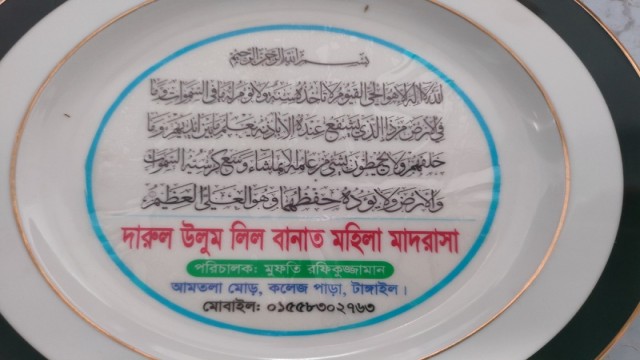 بسم الله الرحمن الرحيم
الله لا اله الا هو الحي القيوم لا تاخذه سنة ولا نوم له ما في السموات وما
في الارض من ذا الذي يشفع عنده الا باذنه يعلم ما بين ايديهم وما
خلفهم ولا يحيطون بشيء من علمه الا بما شاء وسع كرسيه السموات
والارض ولا يوده حفظهما وهو العلي العظيم
দারুল উলুম লিল বানাত মহিলা মাদরাসা
পরিচালক: মুফতি রফিকুজ্জামান
আমতলা মোড়, কলেজ পাড়া, টাঙ্গাইল।
মোবাইল: ০১৫৫৮৩০২৭৬৩